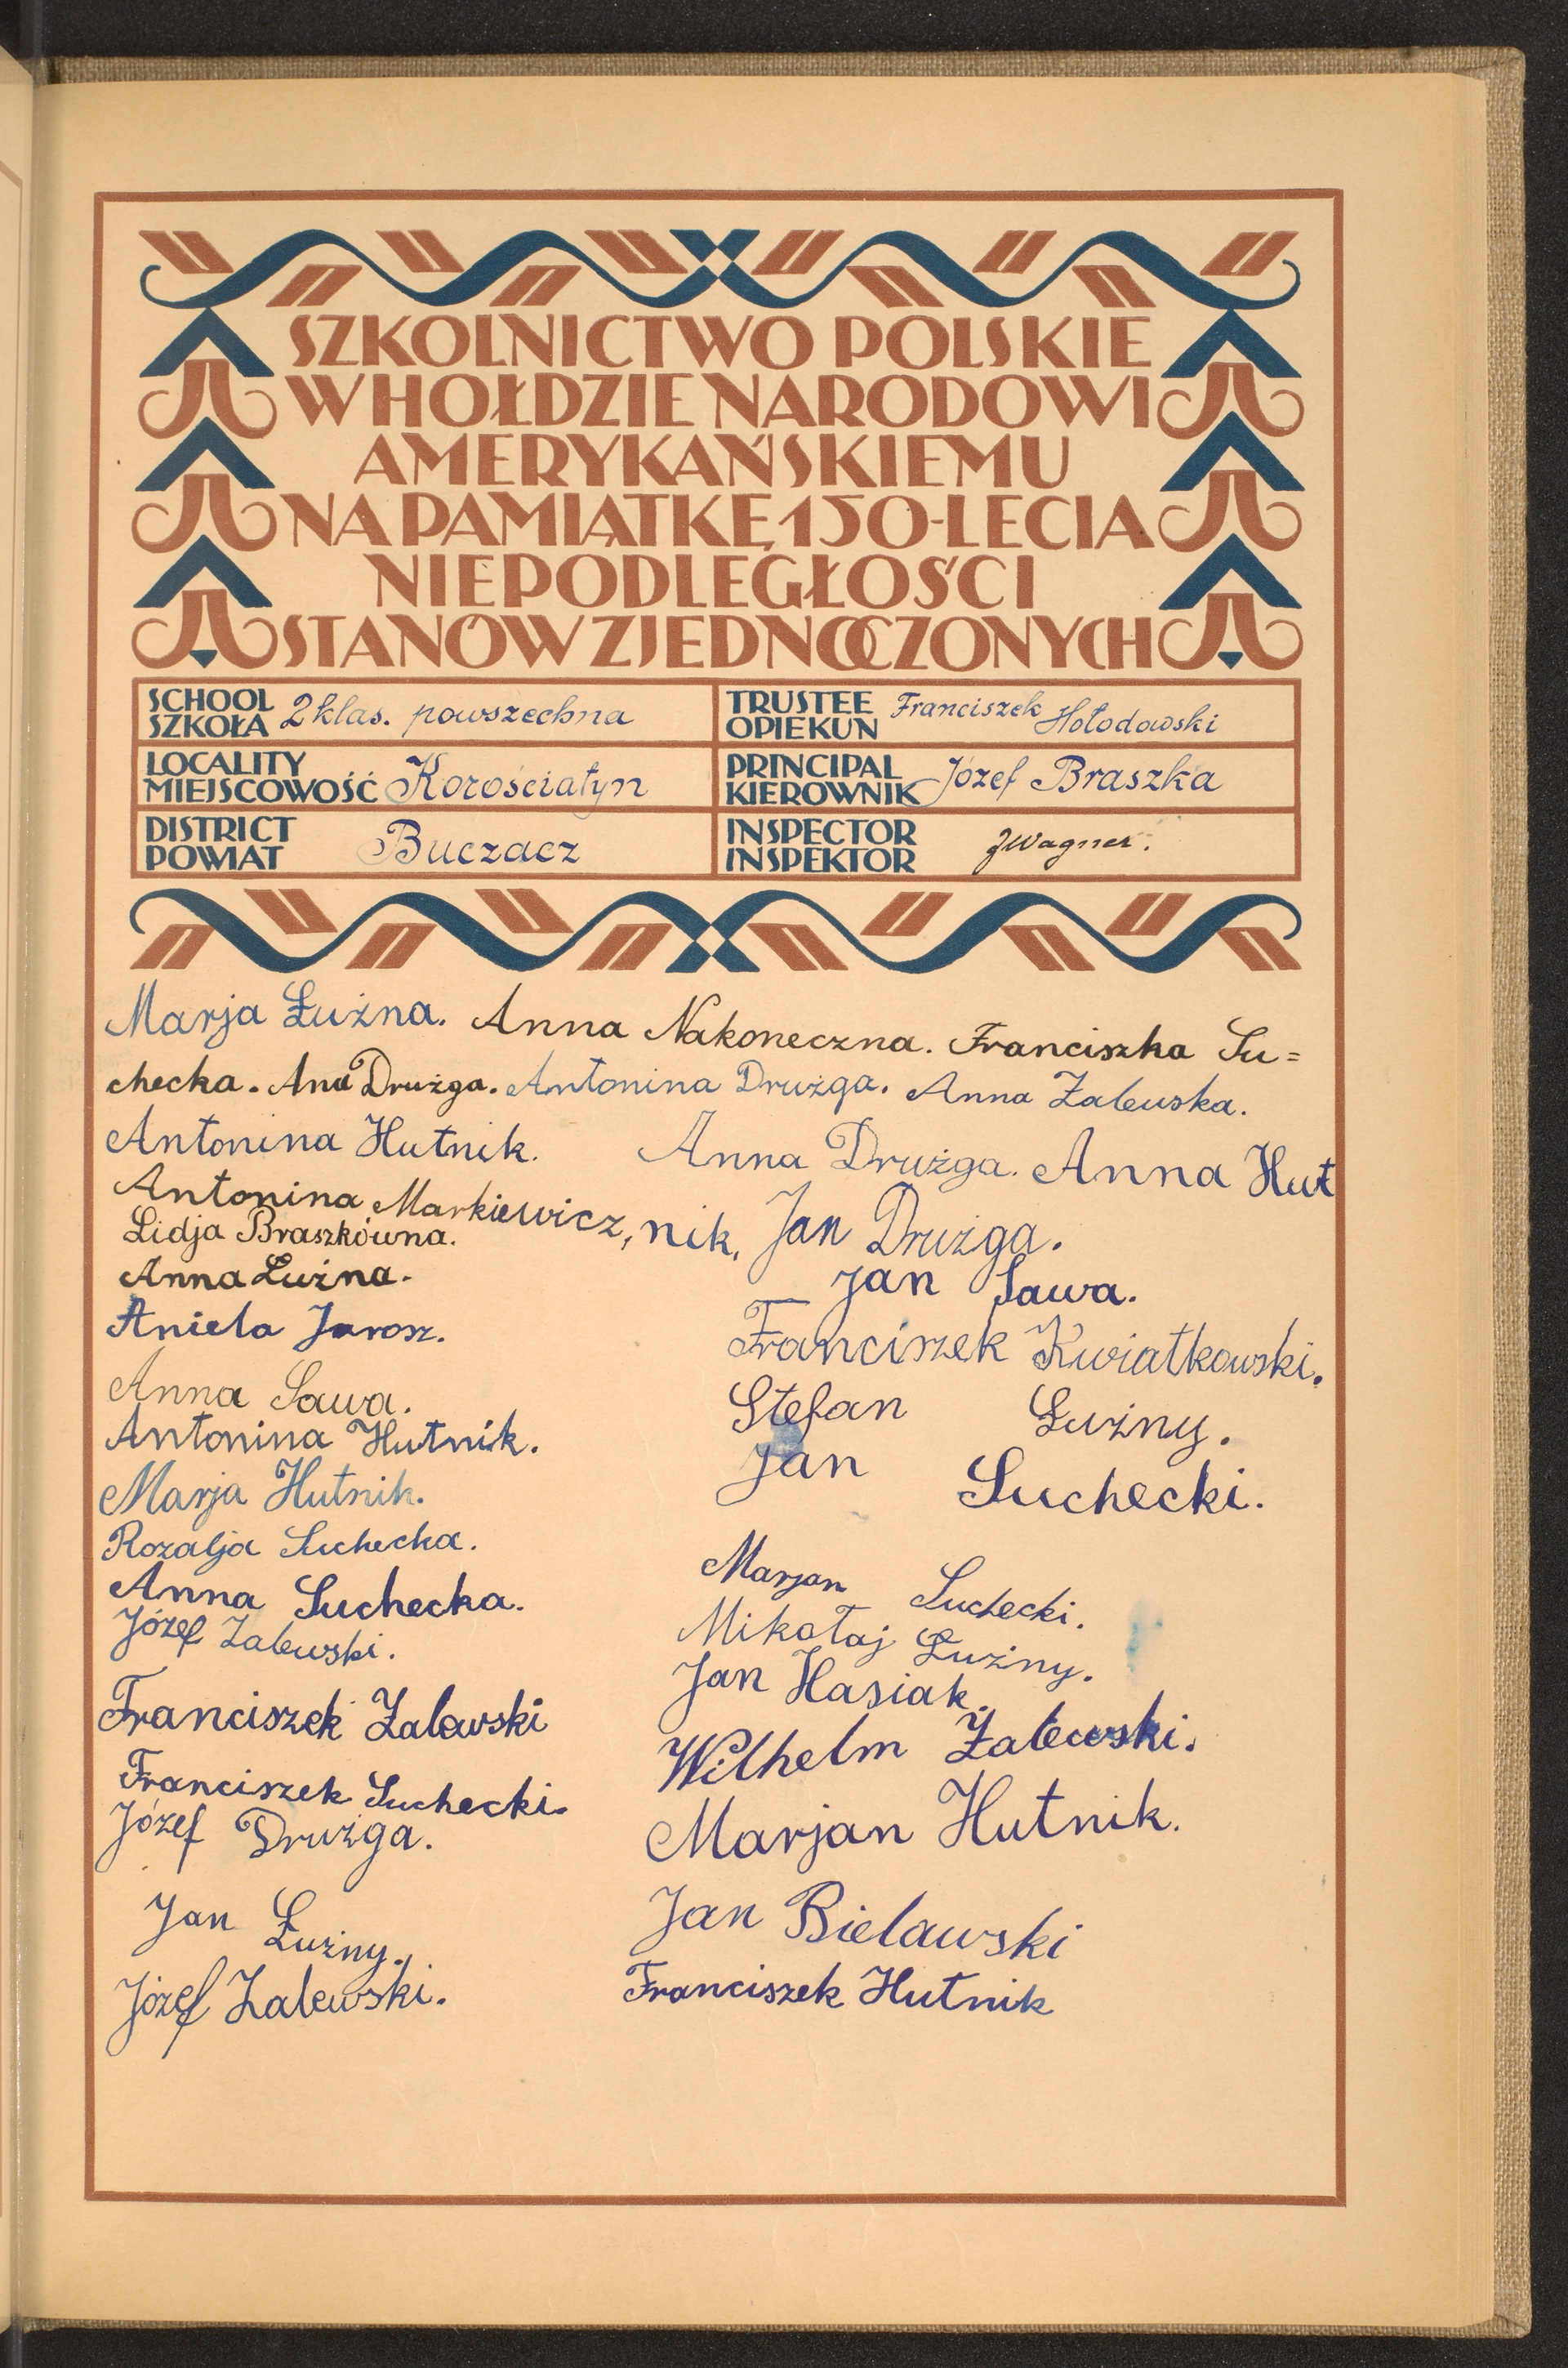 SZKOLNICTWO POLSKIE
W HOŁDZIE NARODOWI
AMERYKAŃSKIEMU
NA PAMIĄTKĘ 150-LECIA
NIEPODLEGŁOŚCI
STANÓW ZJEDNOCZONYCH
SCHOOL
SZKOŁA 2 klas. powszechna
TRUSTEE
OPIEKUN Franciszek Hołodowski
LOCALITY
MIEJSCOWOŚĆ Korościatyn
PRINCIPAL
KIEROWNIK Józef Braszka
DISTRICT
POWIAT Buczacz
INSPECTOR
INSPEKTOR JWagner.
Marja Łużna. Anna Nakoneczna. Franciszka Su=
checka. Ana Drużga. Antonina Drużga. Anna Zalewska.
Antonina Hutnik. Anna Drużga. Anna Hut
nik, Jan Drużga.
Antonina Markiewicz,
Lidja Braszkówna.
Anna Łużna.
Aniela Jarosz.
Anna Sawa.
Antonina Hutnik.
Marja Hutnik.
Rozalja Suchecka.
Anna Suchecka.
Józef Zalewski.
Franciszek Zalewski
Franciszek Suchecki.
Józef Drużga.
Jan Łużny.
Józef Zalewski.
Jan Sawa.
Franciszek Kwiatkowski.
Stefan Łużny.
Jan Suchecki.
Marjan Suchecki.
Mikołaj Łużny.
Jan Hasiak.
Wilhelm Zalewski.
Marjan Hutnik.
Jan Bielawski
Franciszek Hutnik